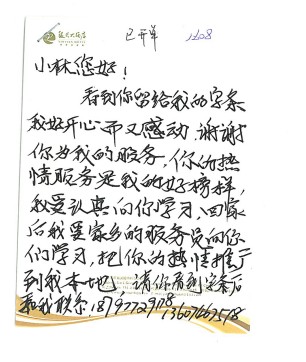 已开单 1208
小林您好！
看到你留给我的字条
我好开心而又感动，谢谢
你为我的服务，你的热
情服务是我的好榜样，
我要认真向你学习，回家
后我要家乡的服务员向你
们学习，把你的热情推广
到我本地，请你看到字条后
和我联系